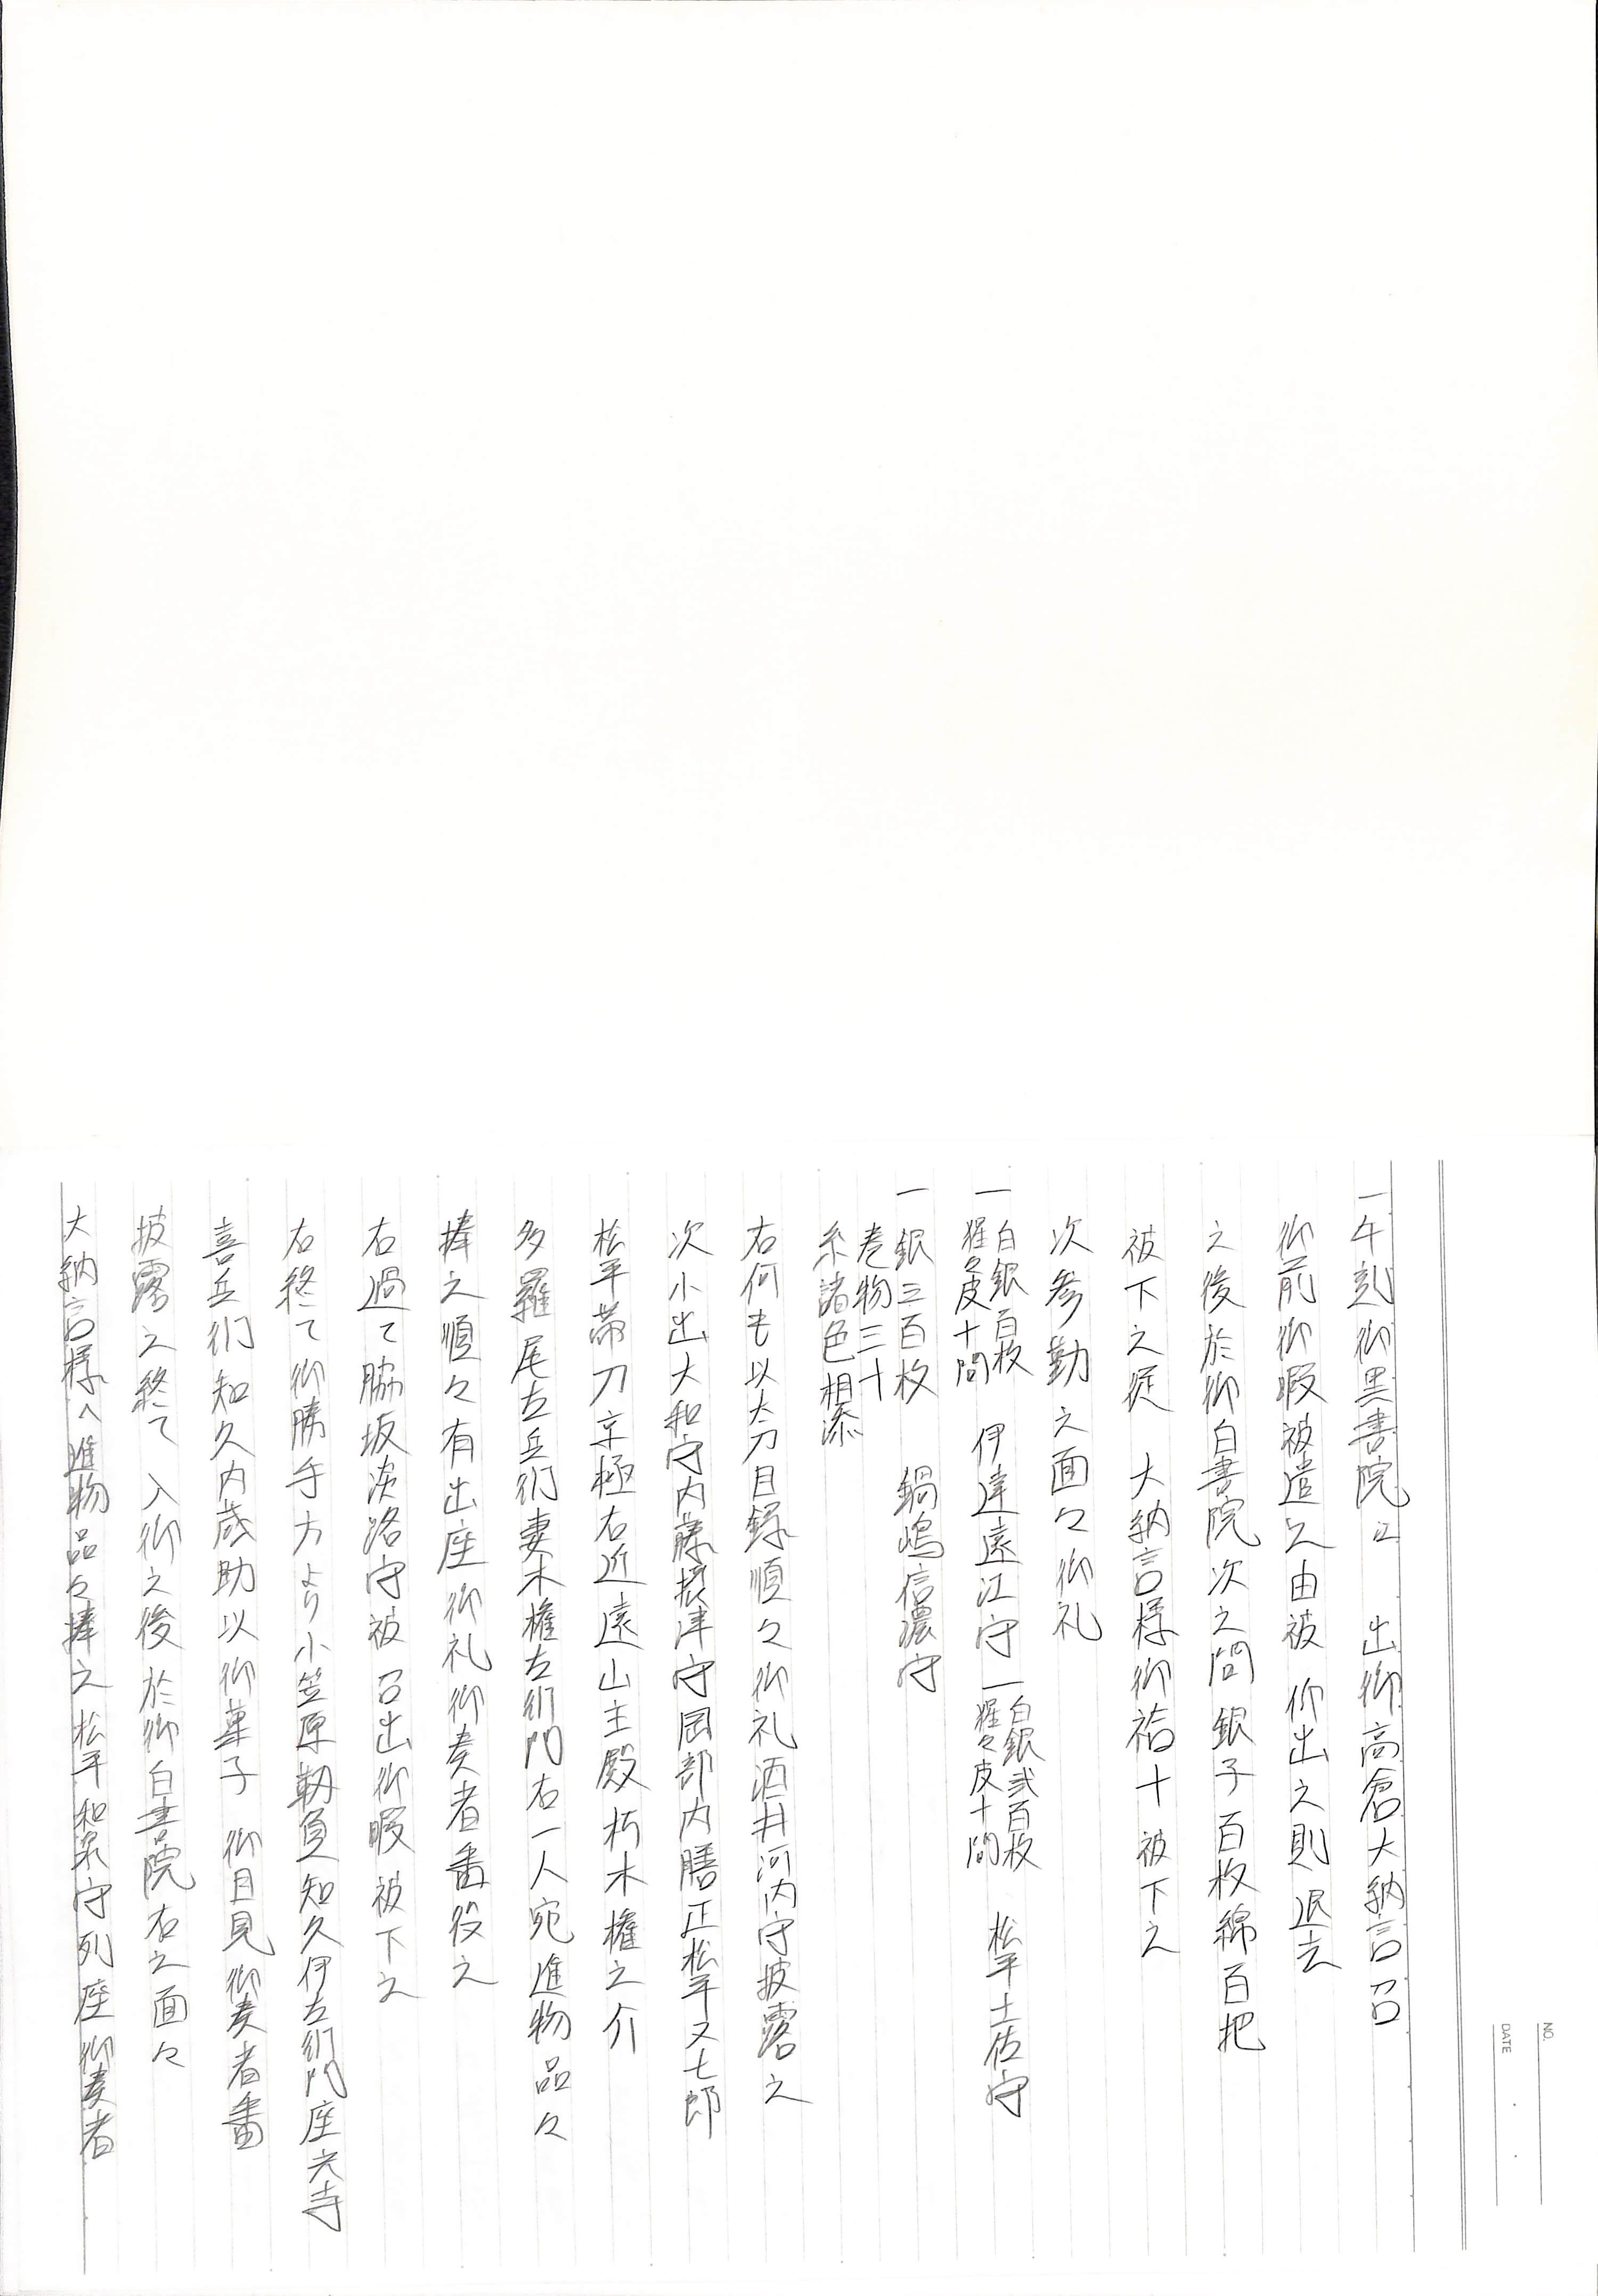 一午刻御黒書院江　出御高倉大納言召
御前御暇被遣之由被　仰出之則退去
之後於御白書院次之間銀子百枚綿百把
被下之従　大納言様御袷十被下之
次参勤之面々御礼
一白銀百枚　猩々皮十間　伊達遠江守　一白銀弐百枚　猩々皮十間　松平土佐守
一銀三百枚　鍋嶋信濃守
巻物三十
糸諸色相添
右何も以太刀目録順々御礼酒井河内守披露之
次小出大和守内藤摂津守岡部内膳正松平又七郎
松平帯刀京極右近遠山主殿朽木権之介
多羅尾左兵衛妻木権左衛門右一人宛進物品々
捧之順々有出座御礼御奏者番役之
右過て脇坂淡路守被召出御暇被下之
右終て御勝手方より小笠原靱負知久伊左衛門座光寺
喜兵衛知久内蔵助以御菓子　御目見御奏者番
披露之終て　入御之後於御白書院右之面々
大納言様へ進物品々捧之松平和泉守列座御奏者
NO.
DATE